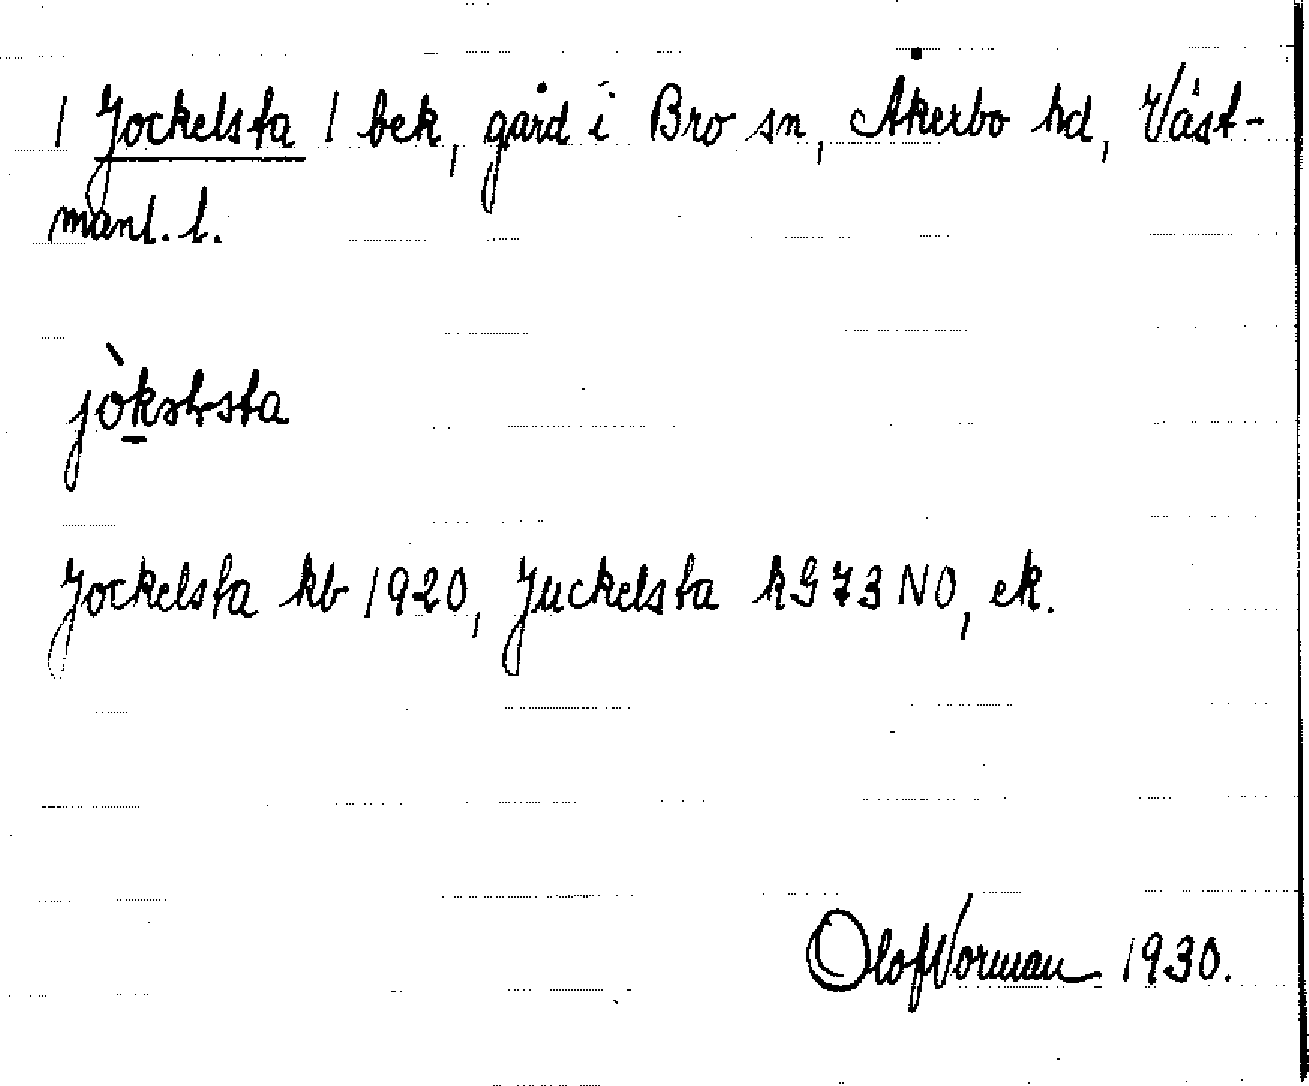 1 Jockelsta 1 bek, gård i Bro sn, Åkerbo hd, Väst-
manl. l.
jòkəlsta
Jockelsta kb 1920, Juckelsta kG 73 NO, ek.
Olof Norman 1930.